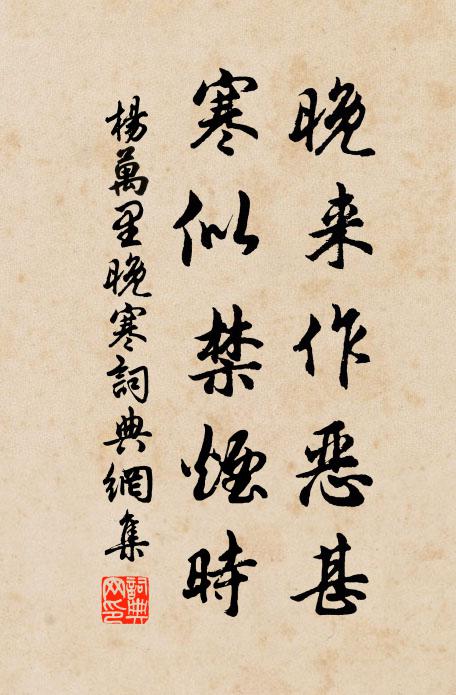 晚来作恶甚
寒似禁烟時
楊萬里晚寒詞典網集
詞典网印